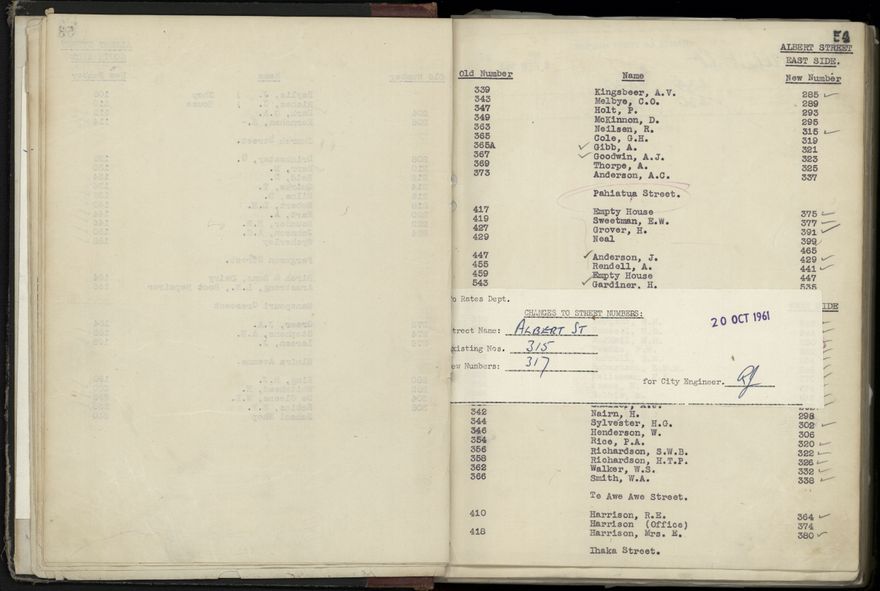 54
ALBERT STREET
EAST SIDE.
Old Number Name New Number
339 Kingsbeer, A.V. 285
343 Melbye, C.O. 289
347 Holt, P. 293
349 McKinnon, D. 295
363 Neilsen, R. 315
365 Cole, G.H. 319
365A Gibb, A. 321
367 Goodwin, A.J. 323
369 Thorpe, A. 325
373 Anderson, A.C. 337
Pahiatua Street.
417 Empty House 375
419 Sweetman, E.W. 377
427 Grover, H. 391
429 Neal 399
465
447 Anderson, J. 429
455 Rendell, A. 441
459 Empty House 447
543 Gardiner, H. 535
IDE
o Rates Dept.
CHANGES TO STREET NUMBERS:
20 OCT 1961
treet Name: ALBERT ST
xisting Nos. 315
ew Numbers: 317
for City Engineer.
342 Nairn, H. 298
344 Sylvester, H.G. 302
346 Henderson, W. 306
354 Rice, P.A. 320
356 Richardson, S.W.B. 322
358 Richardson, H.T.P. 326
362 Walker, W.S. 332
366 Smith, W.A. 338
Te Awe Awe Street.
410 Harrison, R.E. 364
Harrison (Office) 374
418 Harrison, Mrs. E. 380
Ihaka Street.